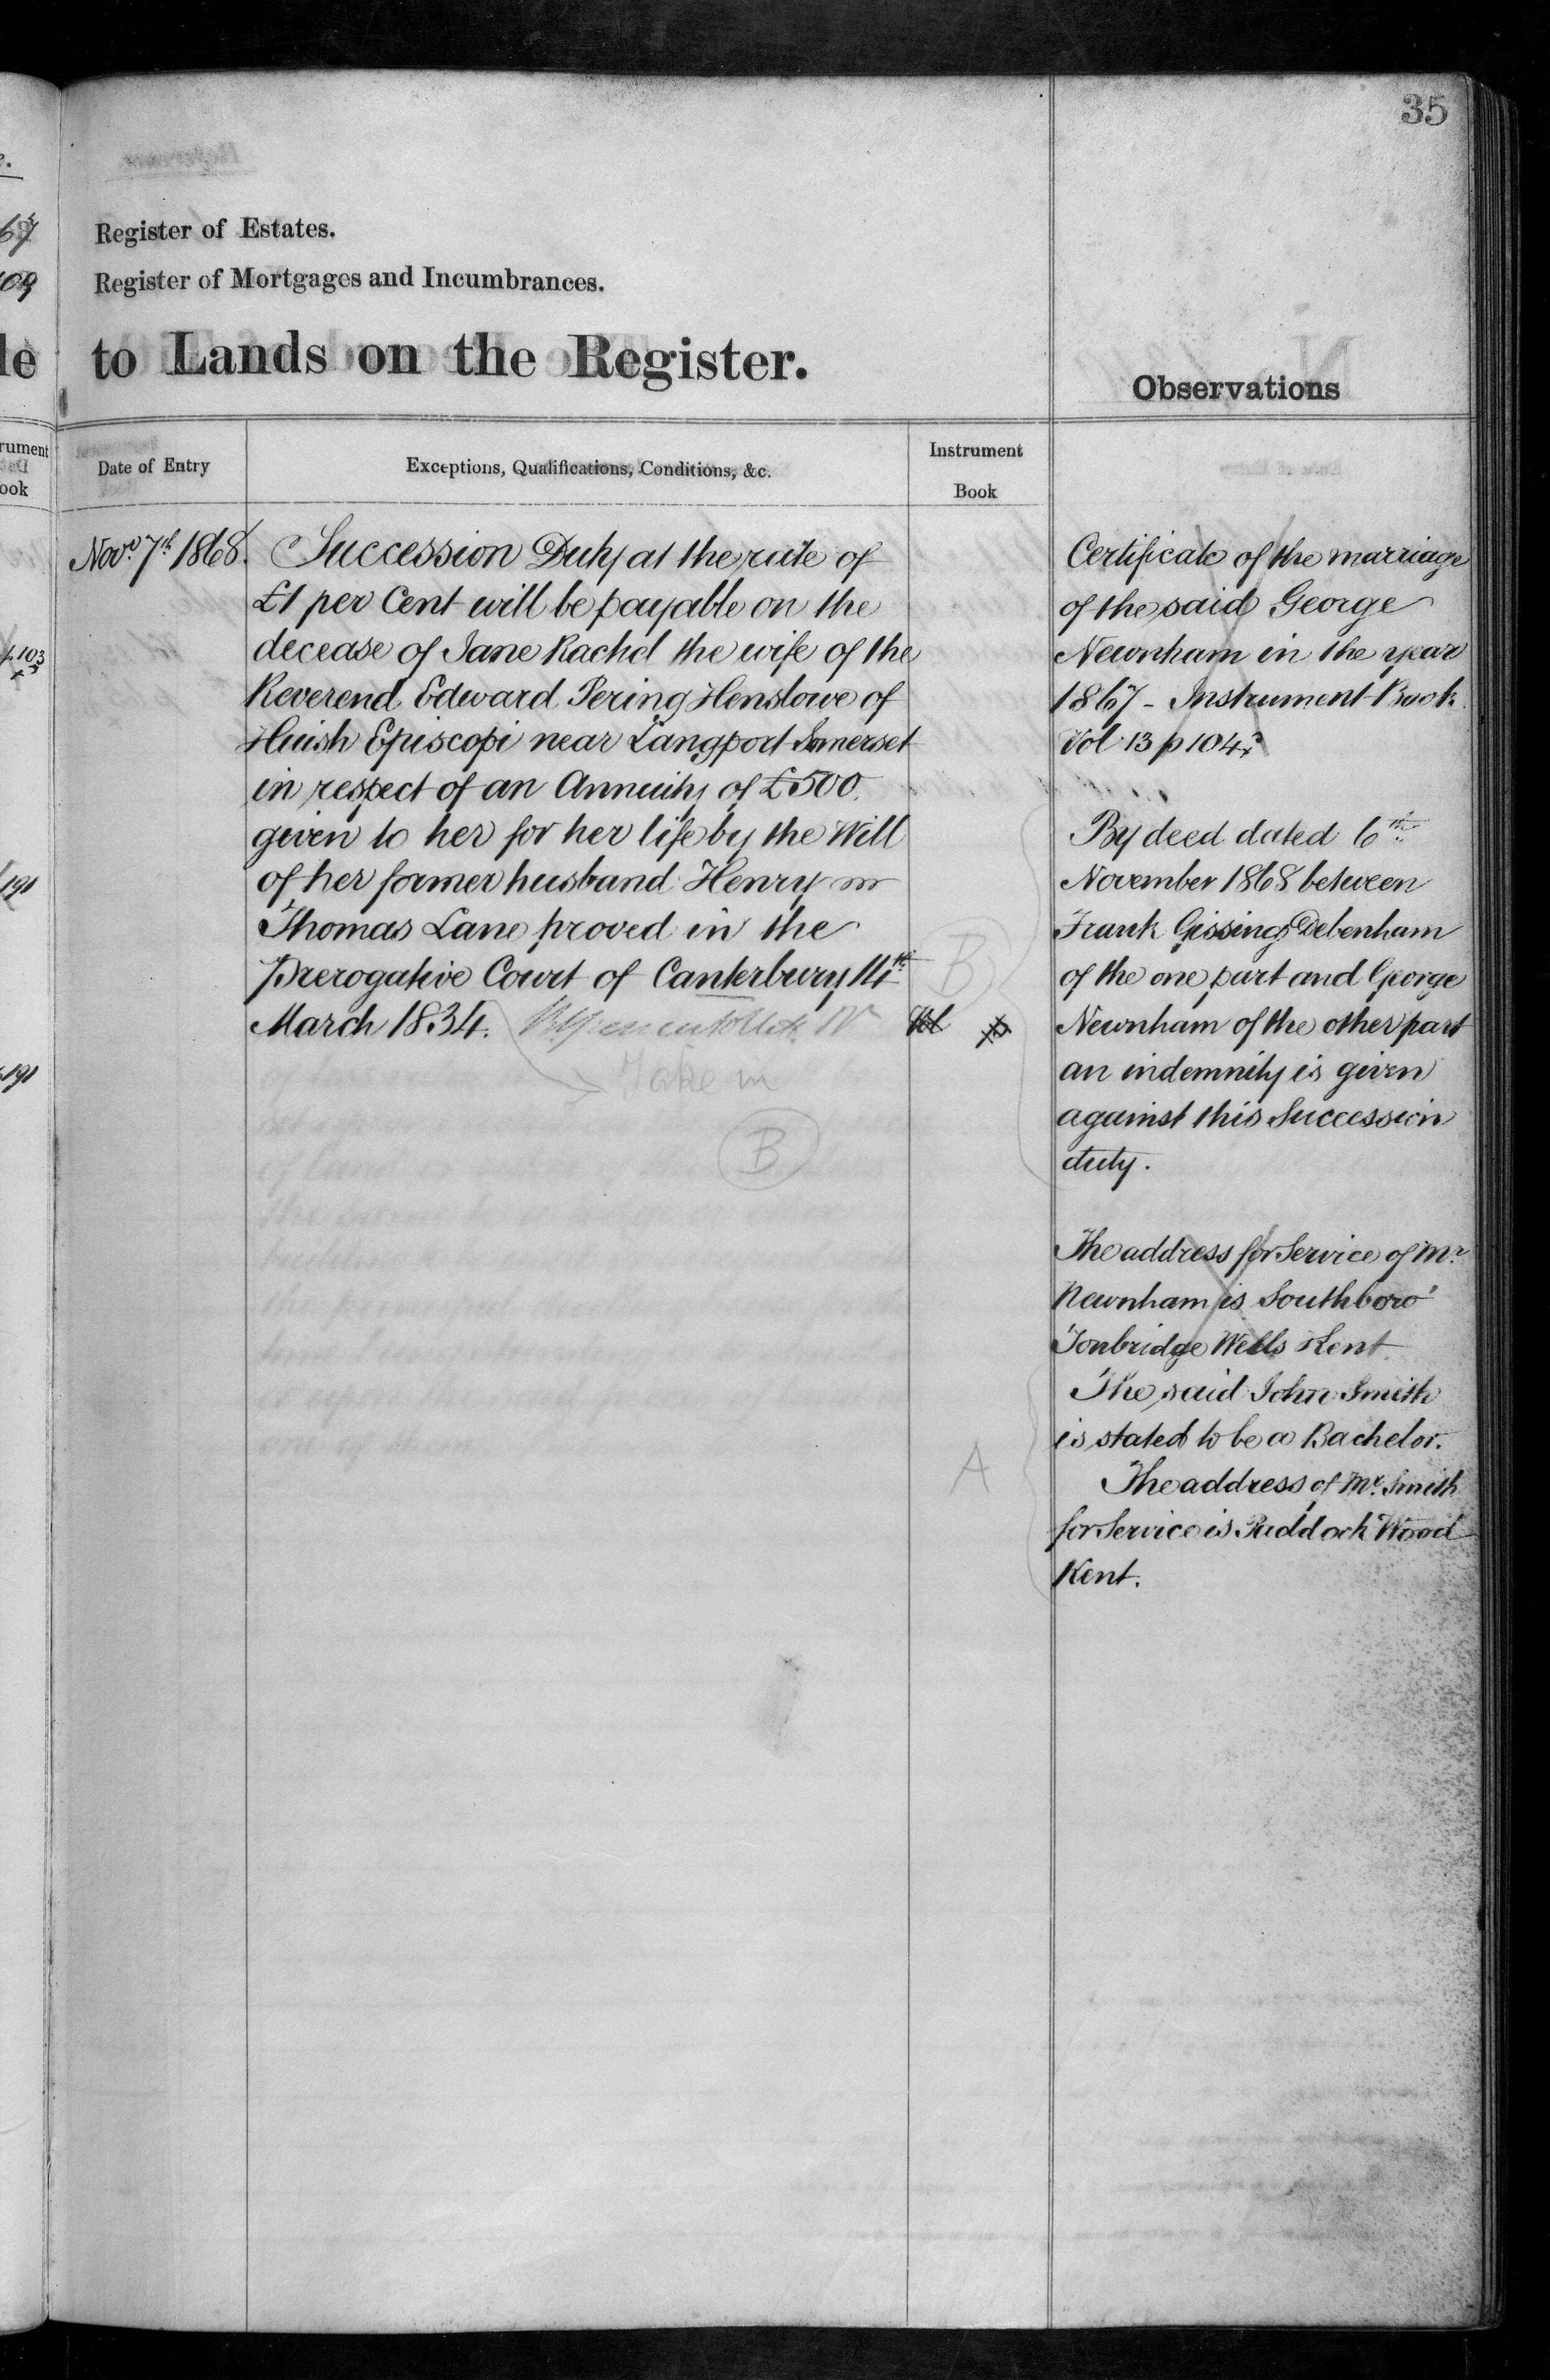 35
Register of Estates.
Register of Mortgages and Incumbrances.
to Lands on the Register.
Observations
Date of Entry
Exceptions, Qualifications, Conditions, &c.
Instrument
Book
Novr. 7th 1868.
Succession Duty at the rate of
£1 per Cent will be payable on the
decease of Jane Rachel the wife of the
Reverend Edward Pering Henslowe of
Huish Episcopi near Langport Somerset
in respect of an Annuity of £500
given to her for her life by the Will
of her former husband Henry
Thomas Lane proved in the
Prerogative Court of Canterbury 14th
March 1834.
Vol p
Take in
B
B
A
Certificate of the marriage
of the said George
Newnham in the year
1867 - Instrument Book
Vol 13 p 104
By deed dated 6th
November 1868 between
Frank Gissing Debenham
of the one part and George
Newnham of the other part
an indemnity is given
against this Succession
duty.
The address for Service of Mr.
Newnham is Southboro'
Tonbridge Wells Kent
The said John Smith
is stated to be a Bachelor.
The address of Mr. Smith
for Service is Paddock Wood
Kent.
le
rument
ook
p. 103
191
191